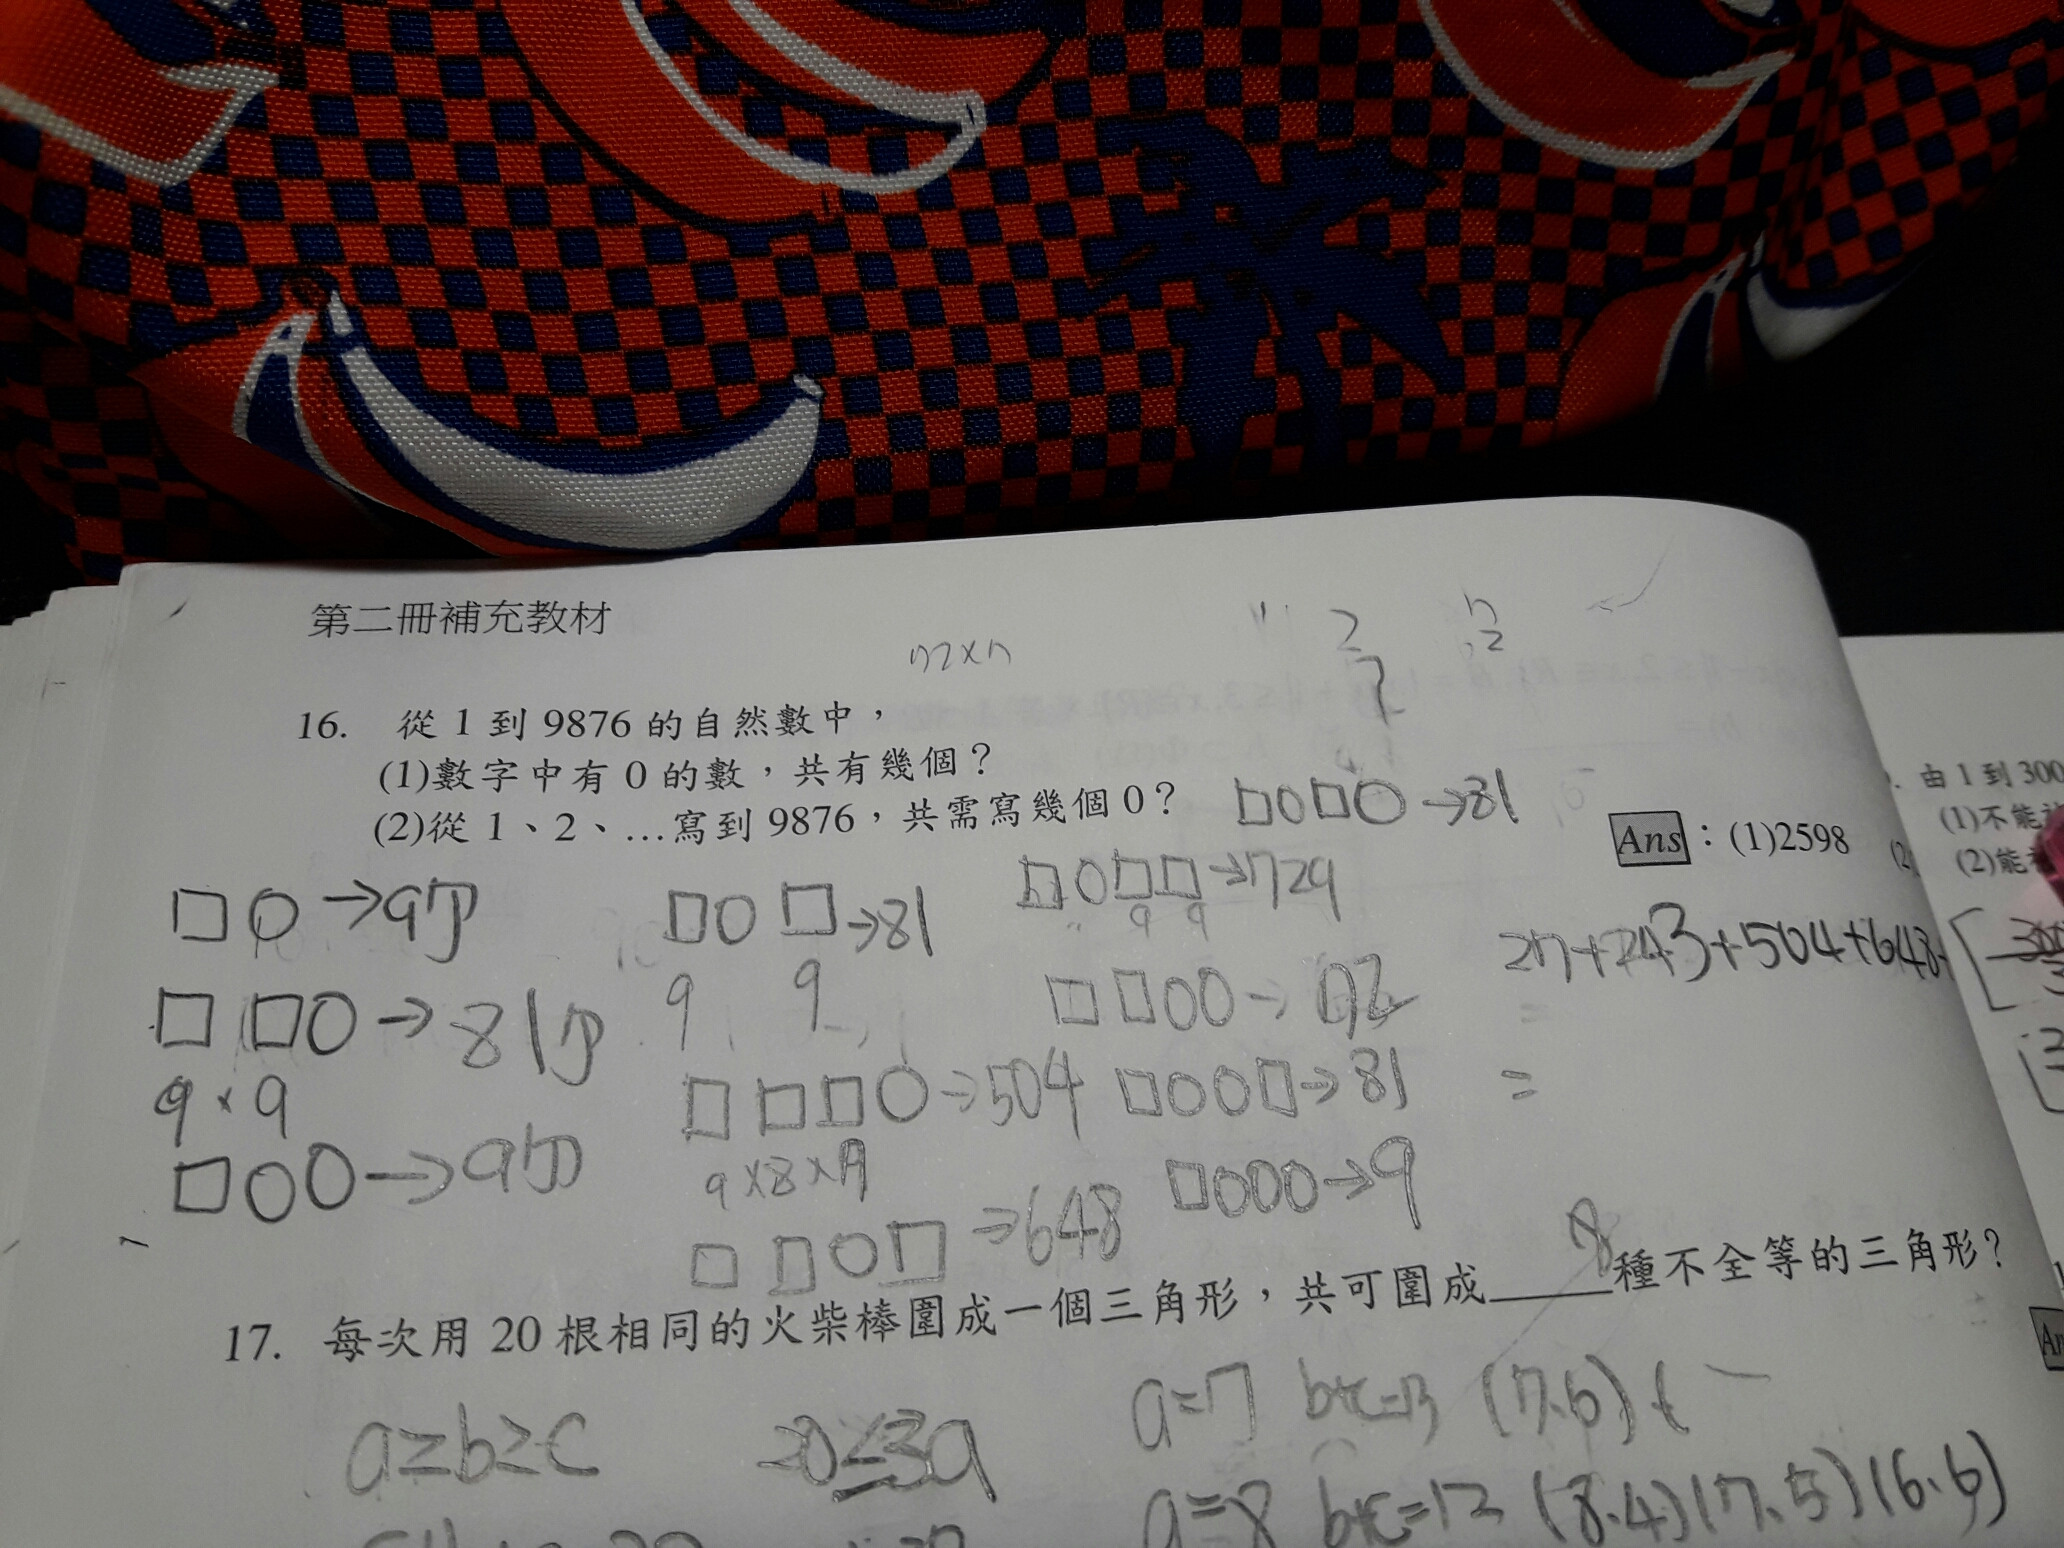 第二冊補充教材
72×7
16. 從 1 到 9876 的自然數中，
(1)數字中有 0 的數，共有幾個？
(2)從 1、2、…寫到 9876，共需寫幾個 0？
□0□0→81
Ans：(1)2598
□0→9個
□□0→81個
9×9
□00→9個
□0□→81
9 9
□□□0→504
9×8×7
□□0□→648
□0□□→729
9 9
□□00→72
□00□→81
□000→9
27+243+504+648+
=
=
17. 每次用 20 根相同的火柴棒圍成一個三角形，共可圍成8種不全等的三角形？
a≥b≥c
20≤3a
a=7 b+c=13 (7.6)
a=8 b+c=12 (8.4)(7.5)(6.6)
由 1 到 300
(1)不能
(2)能